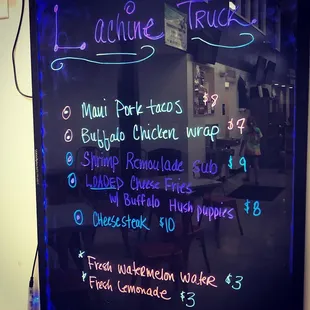 Lachine Truck
Maui Pork tacos $8
Buffalo Chicken wrap $7
Shrimp Remoulade Sub $9
LOADED Cheese Fries
w/ Buffalo Hushpuppies $8
Cheesesteak $10
* Fresh Watermelon Water $3
* Fresh Lemonade $3